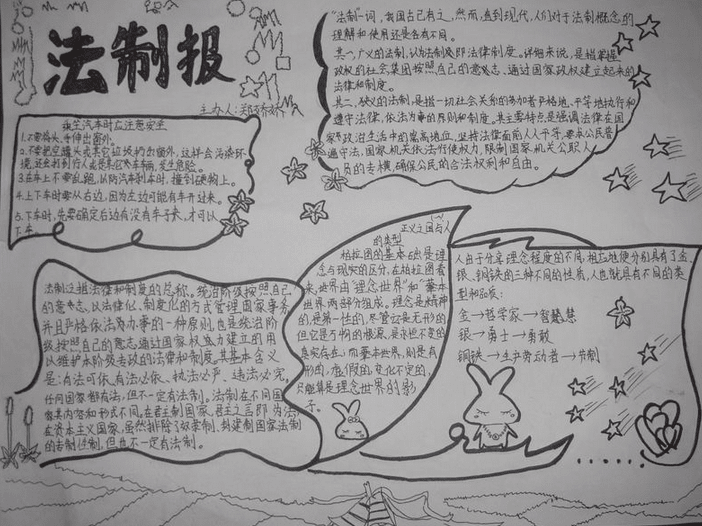 法制报
主办人:郑娇娇
乘坐汽车时应注意安全
1.不要将头、手伸出窗外。
2.不要把空罐头或其它垃圾扔出窗外,这样会污染环
境,还会打到行人或是其它汽车车辆,发生危险。
3.在车上不要乱跑,以防汽车刹车时,撞到硬物上。
4.上下车时要从右边,因为左边可能有车开过来。
5.下车时,先要确定后边有没有车子来,才可以
下车。
"法制"一词,我国古已有之,然而,直到现代,人们对于法制概念的
理解和使用还是各有不同。
其一,广义的法制,认为法制即法律制度。详细来说,是指掌握
政权的社会集团按照自己的意志,通过国家政权建立起来的
法律和制度。
其二,狭义的法制,是指一切社会关系的参加者严格地、平等地执行和
遵守法律,依法办事的原则和制度。其主要特点是强调法律在国
家政治生活中的崇高地位,坚持法律面前人人平等,要求公民普
遍守法,国家机关依法行使权力,限制国家机关公职人
员的专横,确保公民的合法权利和自由。
法制注指法律和制度的总称。统治阶级按照自己
的意志,以法律化、制度化的方式管理国家事务,
并且严格依法办事的一种原则,也是统治阶
级按照自己的意志通过国家权力建立的用
以维护本阶级专政的法律和制度,其基本含义
是:有法可依、有法必依、执法必严、违法必究,
任何国家都有法,但不一定有法制。法制在不同国
家其内容和形式不同,在君主制国家,君主之言即为法,
在资本主义国家,虽然排除了奴隶制、封建制国家法制
的专制性制,但也不一定有法制。
正义之国与人
的类型
柏拉图的基本观念是理
念与现实的区分,在柏拉图看
来,世界由"理念世界"和"基本
世界"两部分组成。理念是精神
的,是第一性的,尽管它是无形的,
但它是万物的根源,是永恒不变的
真实存在;而基本世界,则是有
形的,虚假的,变化不定的,
只能算是理念世界的影
子。
人由于分享理念程度的不同,相应地便分别具有了金、
银、铜铁的三种不同的性质,人也就具有不同的类
型和品质:
金→哲学家→智慧
银→勇士→勇敢
铜铁→生产劳动者→节制